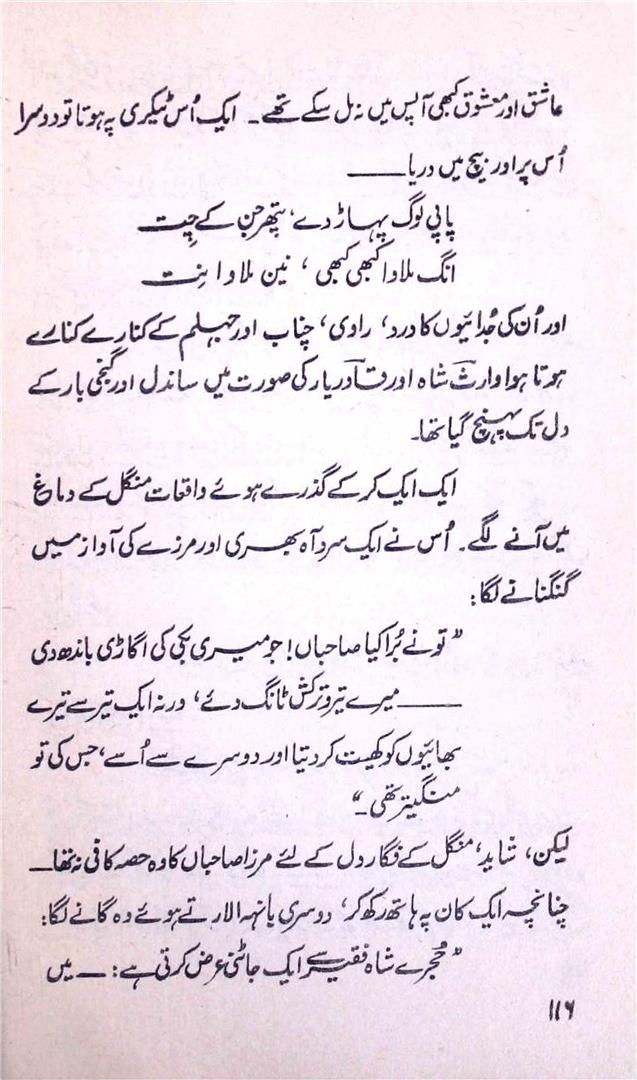 عاشق اور معشوق کبھی آپس میں نہ مل سکے تھے۔ ایک اُس ٹیکری پہ ہوتا تو دوسرا
اُس پر اور بیچ میں دریا ـــــــ
پاپی لوگ پہاڑ دے، پتھر جن کے چِت
انگ ملاوا کبھی کبھی، نین ملاوا نِت
اور اُن کی جُدائیوں کا درد، راوی، چناب اور جہلم کے کنارے کنارے
ہوتا ہوا وارث شاہ اور قادر یار کی صورت میں ساندل اور گنجی بار کے
دل تک پہنچ گیا تھا۔
ایک ایک کر کے گذرے ہوئے واقعات منگل کے دماغ
میں آنے لگے۔ اُس نے ایک سرد آہ بھری اور مرزے کی آواز میں
گنگنانے لگا:
”تو نے بُرا کیا صاحباں! جو میری بکی کی اگاڑی باندھ دی
ـــــــ میرے تیر و ترکش ٹانگ دئے، ورنہ ایک تیر سے تیرے
بھائیوں کو کھیت کر دیتا اور دوسرے سے اُسے، جس کی تو
منگیتر تھی۔“
لیکن، شاید، منگل کے فگار دل کے لئے مرزا صاحباں کا وہ حصہ کافی نہ تھا ــــ
چنانچہ ایک کان پہ ہاتھ رکھ کر، دوسری بانہہ الارتے ہوئے وہ گانے لگا:
”حُجرے شاہ فقیر سے ایک جاٹنی عرض کرتی ہے: ـــ میں
۱۱۶